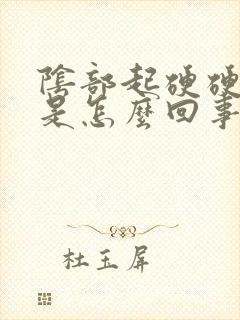 陰部起硬硬
是怎麼回事
杜玉屏